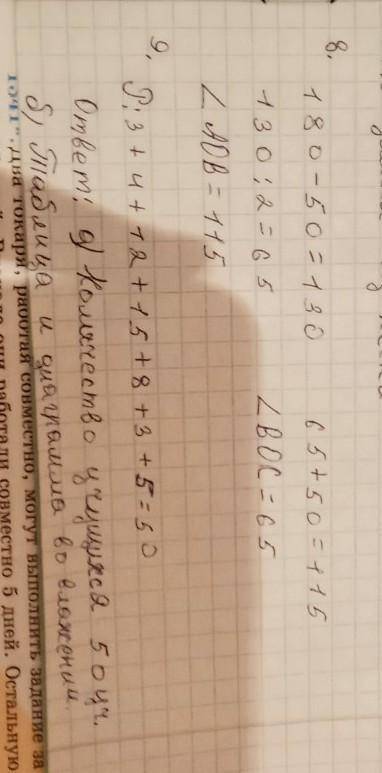 8. 180-50=130 65+50=115
130:2=65 ∠BOC=65
∠AOB=115
9. P: 3+4+12+15+8+3+5=50
Ответ: а) Количество учущихся 50 уч.
б) Таблица и диаграмма во вложении.
два токаря, работая совместно, могут выполнить задание за
они работали совместно 5 дней. Остальную